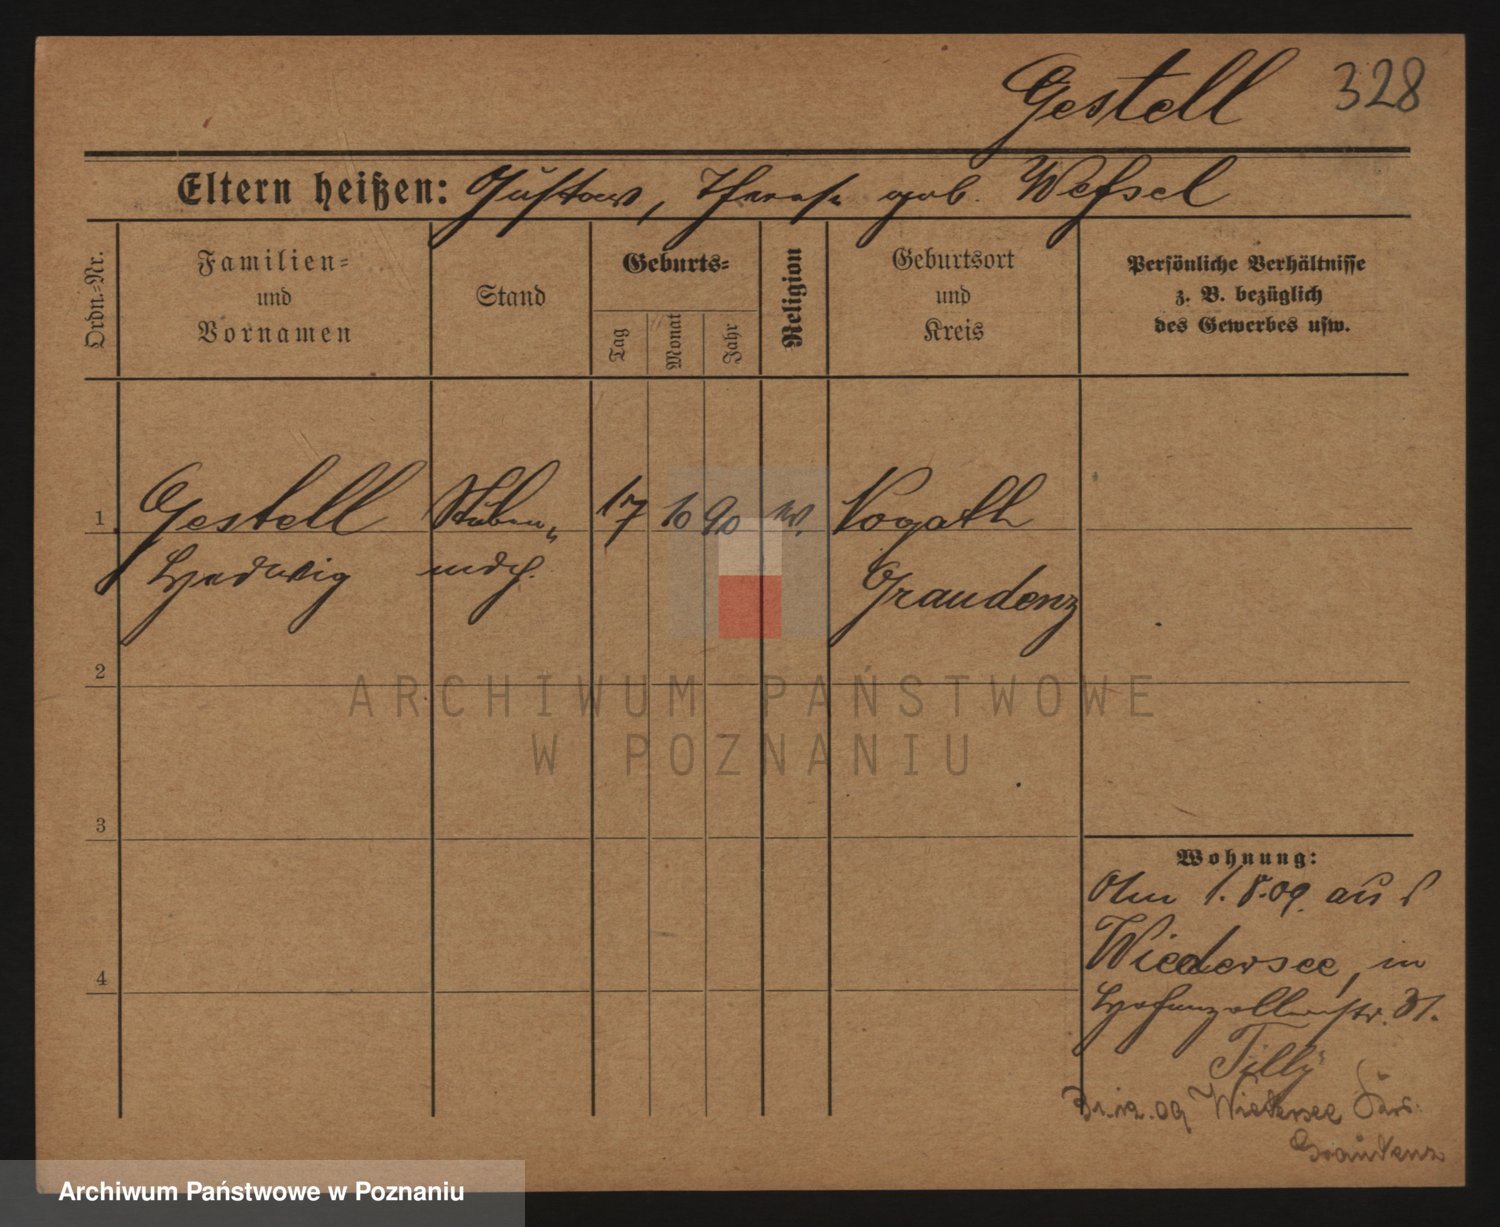 Gestell 328
Eltern heißen: Gustav, Therese geb. Wessel
Ordn.=Nr.
Familien=
und
Vornamen
Stand
Geburts=
Tag
Monat
Jahr
Religion
Geburtsort
und
Kreis
Persönliche Verhältnisse
z. B. bezüglich
des Gewerbes usw.
1 Gestell Stuben„ 17 10 90 Nogath
Hedwig mdch. Graudenz
2
3
4
Wohnung:
1.8.09 aus
Wiedersee, in
Hohenzollernstr. 31.
Tilly
31.12.09 Wiedersee
Graudenz
ARCHIWUM PAŃSTWOWE
W POZNANIU
Archiwum Państwowe w Poznaniu